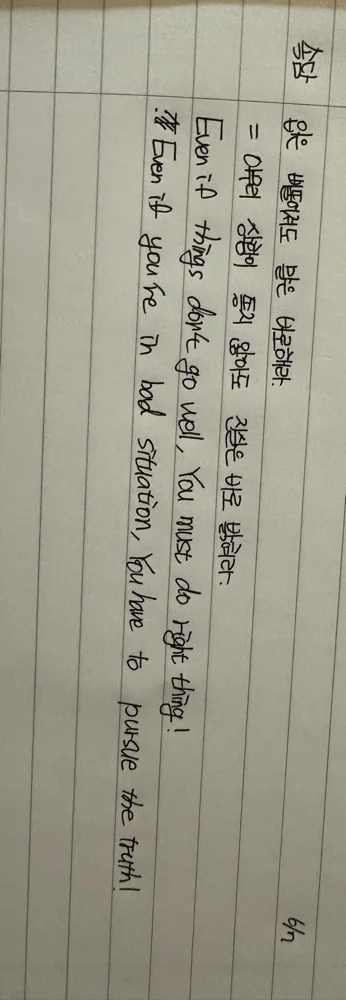 속담
입은 삐뚤어져도 말은 바로하라.
= 아무리 상황이 좋지 않아도 진실은 바로 밝혀라.
Even if things don't go well, You must do right thing!
※ Even if you're in bad situation, You have to pursue the truth!